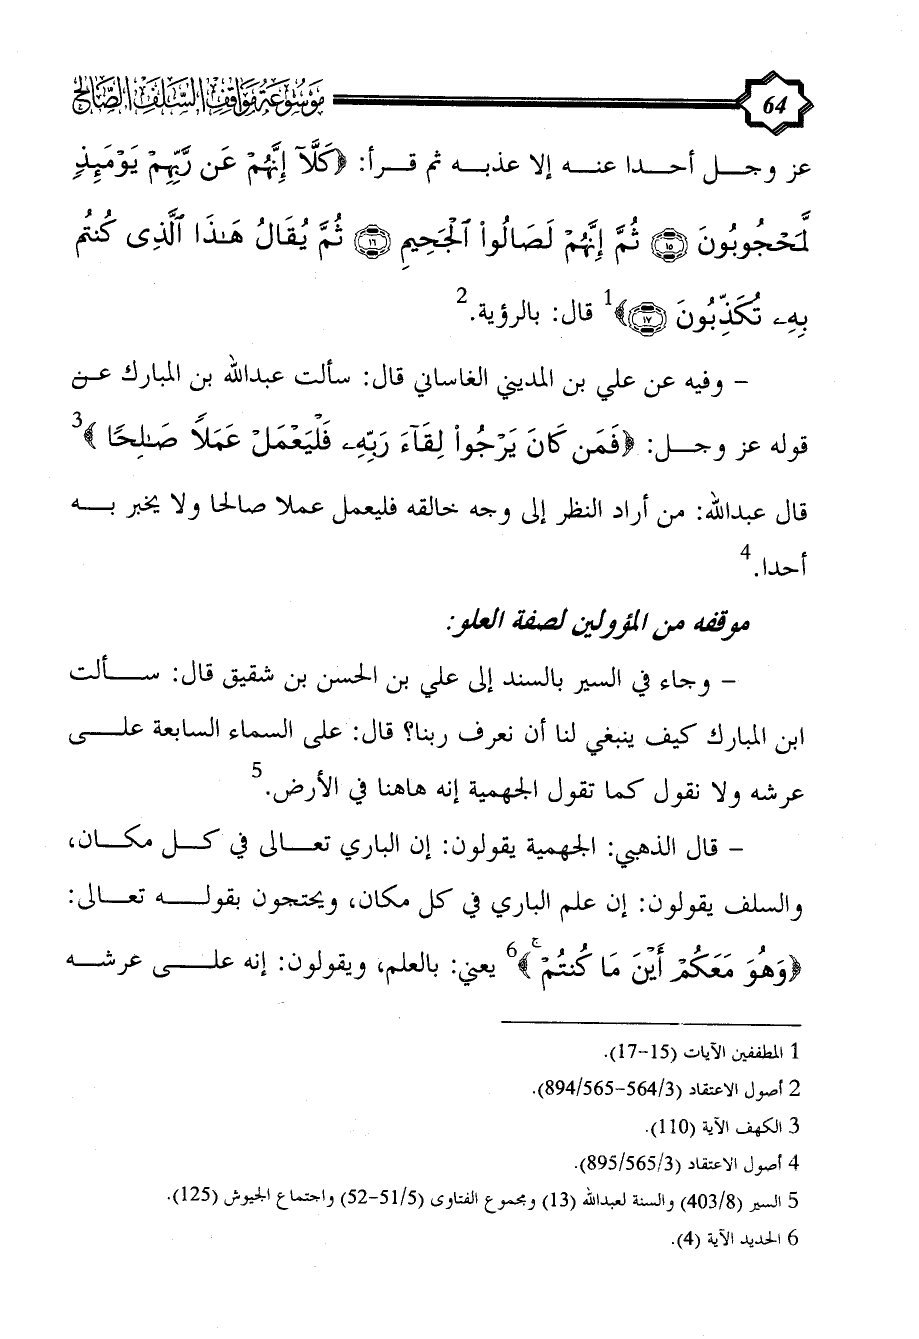 64 موسوعة مواقف السلف الصالح
عز وجل أحدا عنه إلا عذبه ثم قرأ: ﴿كَلَّآ إِنَّهُمْ عَن رَّبِّهِمْ يَوْمَئِذٍ
لَّمَحْجُوبُونَ ۝١٥ ثُمَّ إِنَّهُمْ لَصَالُوا۟ ٱلْجَحِيمِ ۝١٦ ثُمَّ يُقَالُ هَٰذَا ٱلَّذِى كُنتُم
بِهِۦ تُكَذِّبُونَ ۝١٧﴾1 قال: بالرؤية.2
– وفيه عن علي بن المديني الغاساني قال: سألت عبدالله بن المبارك عن
قوله عز وجل: ﴿فَمَن كَانَ يَرْجُوا۟ لِقَآءَ رَبِّهِۦ فَلْيَعْمَلْ عَمَلًا صَٰلِحًا﴾3
قال عبدالله: من أراد النظر إلى وجه خالقه فليعمل عملا صالحا ولا يخبر به
أحدا.4
موقفه من المؤولين لصفة العلو:
– وجاء في السير بالسند إلى علي بن الحسن بن شقيق قال: سألت
ابن المبارك كيف ينبغي لنا أن نعرف ربنا؟ قال: على السماء السابعة على
عرشه ولا نقول كما تقول الجهمية إنه هاهنا في الأرض.5
– قال الذهبي: الجهمية يقولون: إن الباري تعالى في كل مكان،
والسلف يقولون: إن علم الباري في كل مكان، ويحتجون بقوله تعالى:
﴿وَهُوَ مَعَكُمْ أَيْنَ مَا كُنتُمْ ۚ﴾6 يعني: بالعلم، ويقولون: إنه على عرشه
1 المطففين الآيات (15-17).
2 أصول الاعتقاد (564/3-894/565).
3 الكهف الآية (110).
4 أصول الاعتقاد (895/565/3).
5 السير (403/8) والسنة لعبدالله (13) ومجموع الفتاوى (51/5-52) واجتماع الجيوش (125).
6 الحديد الآية (4).